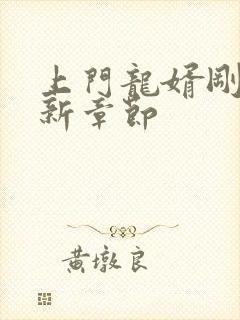 上門龍婿剛
新章節
黄墩良